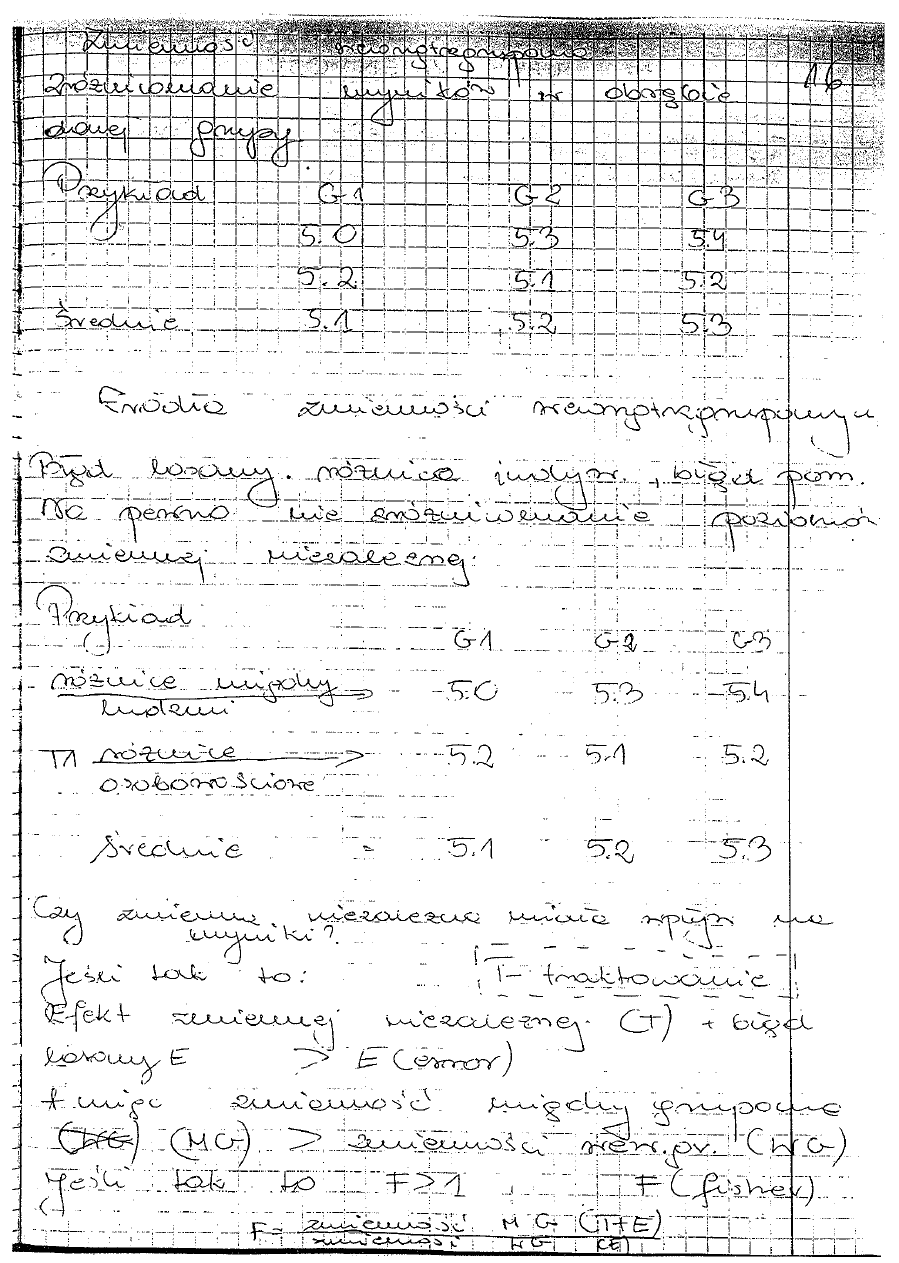 Zmienność wewnątrzgrupowa
16
zróżnicowanie wyników w obrębie
danej grupy.
Przykład G1 G2 G3
5.0 5.3 5.4
5.2 5.1 5.2
Średnie 5.1 5.2 5.3
Źródła zmienności wewnątrzgrupowej
Błąd losowy. różnica indyw., błąd pom.
Na pewno nie zróżnicowanie poziomów
zmiennej niezależnej.
Przykład
G1 G2 G3
różnice między → 5.0 5.3 5.4
ludźmi
T1 różnice → 5.2 5.1 5.2
osobowościowe
Średnie = 5.1 5.2 5.3
Czy zmienna niezależna miała wpływ na
wyniki?
Jeśli tak to: T- traktowanie
Efekt zmiennej niezależnej. (T) + błąd
losowy E > E (error)
A więc zmienność między grupowa
(WG) (MG) > zmienności wew.gr. (WG)
Jeśli tak to F>1 F (fisher)
F= zmienność MG (T+E)
zmienność WG (E)